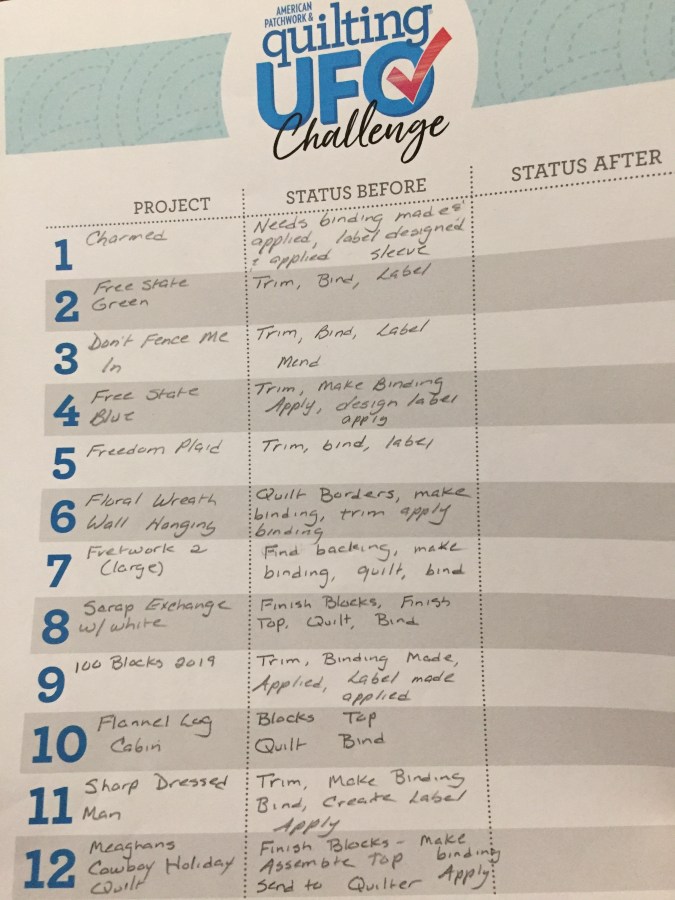 AMERICAN
PATCHWORK &
quilting
UFO
Challenge
PROJECT STATUS BEFORE STATUS AFTER
1 Charmed
Needs binding made &
applied, label designed
& applied sleeve
2 Free State
Green
Trim, Bind, Label
3 Don't Fence Me
In
Trim, Bind, Label
Mend
4 Free State
Blue
Trim, Make Binding
Apply, design label
apply
5 Freedom Plaid
Trim, bind, label
6 Floral Wreath
Wall Hanging
Quilt Borders, make
binding, trim apply
binding
7 Fretwork 2
(large)
Find backing, make
binding, quilt, bind
8 Scrap Exchange
w/ white
Finish Blocks, Finish
Top, Quilt, Bind
9 100 Blocks 2019
Trim, Binding Made,
Applied, Label made
applied
10 Flannel Log
Cabin
Blocks Top
Quilt Bind
11 Sharp Dressed
Man
Trim, Make Binding
Bind, Create Label
Apply
12 Meaghans
Cowboy Holiday
Quilt
Finish Blocks - Make
Assemble Top binding
Send to Quilter Apply